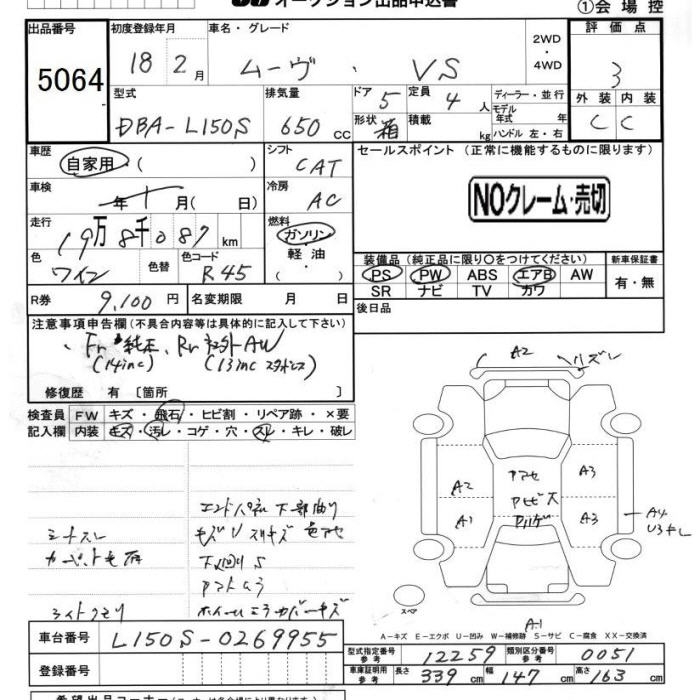 オークション出品申込書
①会場控
出品番号 初度登録年月 車名・グレード 評価点
5064 18 2月 ムーヴ・VS 2WD・4WD 3
型式 排気量 ドア 5 定員 4人 ディーラー・並行 外装 内装
DBA-L150S 650cc 形状 箱 積載 kg モデル年式 年 ハンドル 左・右 C C
車歴 自家用 ( ) シフト CAT セールスポイント (正常に機能するものに限ります)
車検 年 月( 日) 冷房 AC NOクレーム・売切
走行 19万8千087km 燃料 ガソリン・軽油・( )
色 ワイン 色替 色コード R45
装備品(純正品に限り○をつけてください) 新車保証書
PS PW ABS エアB AW 有・無
SR ナビ TV カワ
R券 9,100円 名変期限 月 日 後日品
注意事項申告欄(不具合内容等は具体的に記入して下さい)
Fr 純正、Rr 社外AW
(14inc) (13inc スタッドレス)
修復歴 有〔箇所 〕
検査員 FW キズ・飛石・ヒビ割・リペア跡・×要
記入欄 内装 キズ・汚レ・コゲ・穴・スレ・キレ・破レ
A2 スレ
A2 A1 アマセ A3 A3
A4
A1
シートスレ
エンドパネル下部曲り
下回りS
ライトクモリ
スペア
A-キズ E-エクボ U-凹み W-補修跡 S-サビ C-腐食 XX-交換済
車台番号 L150S-0269955
登録番号
型式指定番号 参考 12259 類別区分番号 参考 0051
車庫証明用 参考 長さ 339cm 幅 147cm 高さ 163cm